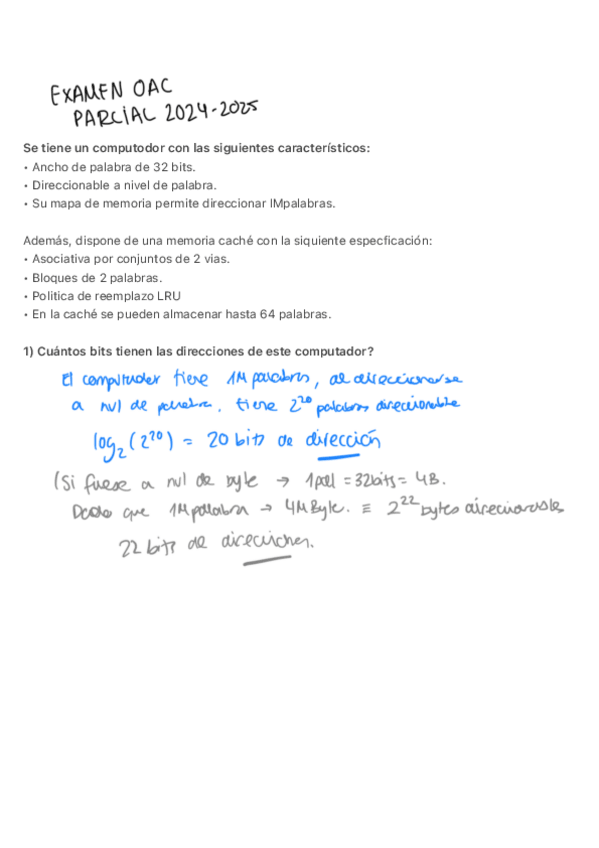 EXAMEN OAC
PARCIAL 2024-2025
Se tiene un computodor con las siguientes característicos:
• Ancho de palabra de 32 bits.
• Direccionable a nivel de palabra.
• Su mapa de memoria permite direccionar IMpalabras.
Además, dispone de una memoria caché con la siquiente especficación:
• Asociativa por conjuntos de 2 vias.
• Bloques de 2 palabras.
• Politica de reemplazo LRU
• En la caché se pueden almacenar hasta 64 palabras.
1) Cuántos bits tienen las direcciones de este computador?
El computador tiene 1M palabras, al direccionarse
a nvl de palabra, tiene 2²⁰ palabras direccionable
log₂(2²⁰) = 20 bits de dirección
(Si fuese a nvl de byte → 1pal = 32bits = 4B.
Dado que 1M palabra → 4M Byte. ≡ 2²² bytes direccionables
22 bits de direcciones.